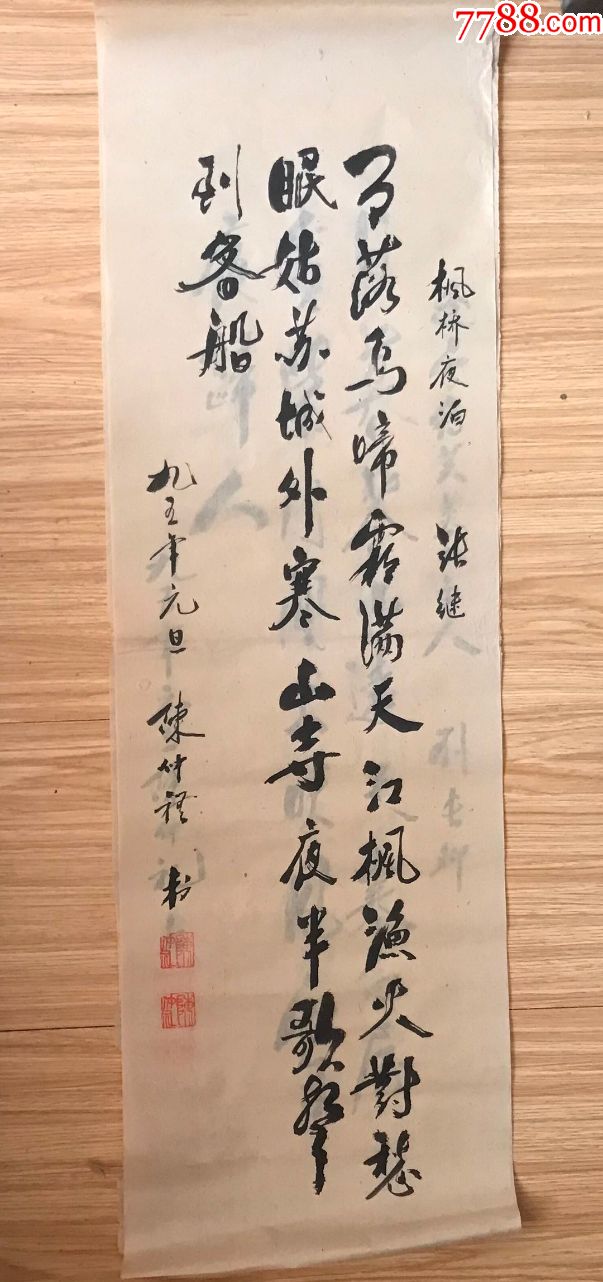 7788.com
楓桥夜泊 张继
月落烏啼霜满天江楓渔火對愁
眠姑苏城外寒山寺夜半歌聲
到客船
九五年元旦 陳